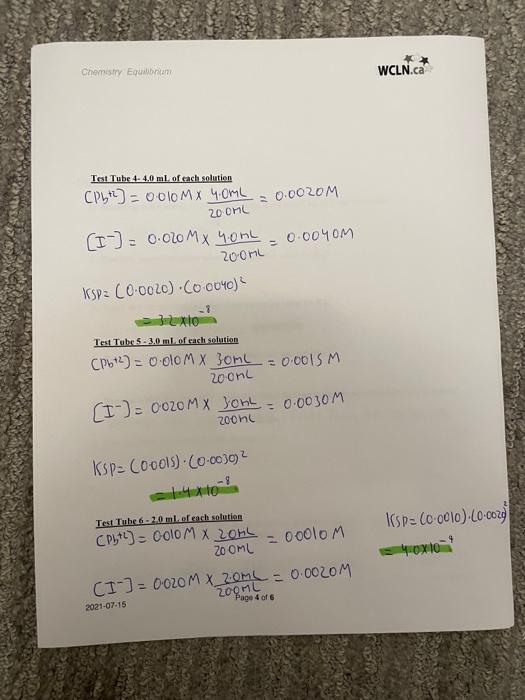 Chemistry: Equilibrium
WCLN.ca
Test Tube 4- 4.0 mL of each solution
[Pb+2] = 0.010 M × 4.0mL/20.0mL = 0.0020M
[I-] = 0.020 M × 4.0mL/20.0mL = 0.0040M
KSP = (0.0020)·(0.0040)²
= 3.2 × 10^-8
Test Tube 5 - 3.0 mL of each solution
[Pb+2] = 0.010 M × 3.0mL/20.0mL = 0.0015 M
[I-] = 0.020 M × 3.0mL/20.0mL = 0.0030M
KSP = (0.0015)·(0.0030)²
= 1.4 × 10^-8
Test Tube 6 - 2.0 mL of each solution
[Pb+2] = 0.010 M × 2.0mL/20.0mL = 0.0010 M
KSP = (0.0010)·(0.0020)²
= 4.0×10^-9
[I-] = 0.020 M × 2.0mL/20.0mL = 0.0020M
Page 4 of 6
2021-07-15